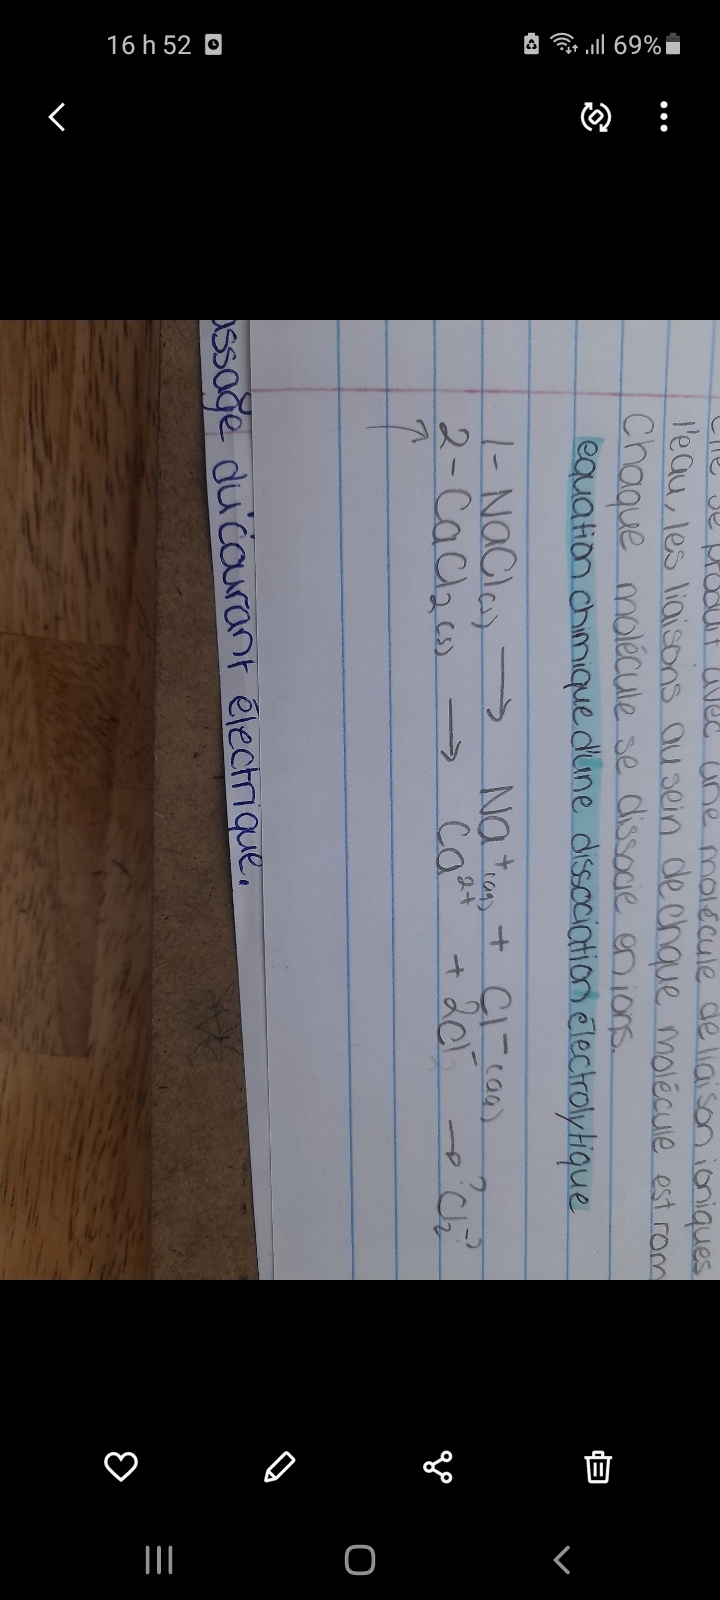 16 h 52
69%
l'eau, les liaisons au sein de chaque molécule est rom
Chaque molécule se dissocie en ions.
équation chimique d'une dissociation électrolytique
1- NaCl(s) → Na⁺(aq) + Cl⁻(aq)
2- CaCl₂(s) → Ca²⁺ + 2Cl⁻ →? Cl₂⁻?
assage du courant électrique.